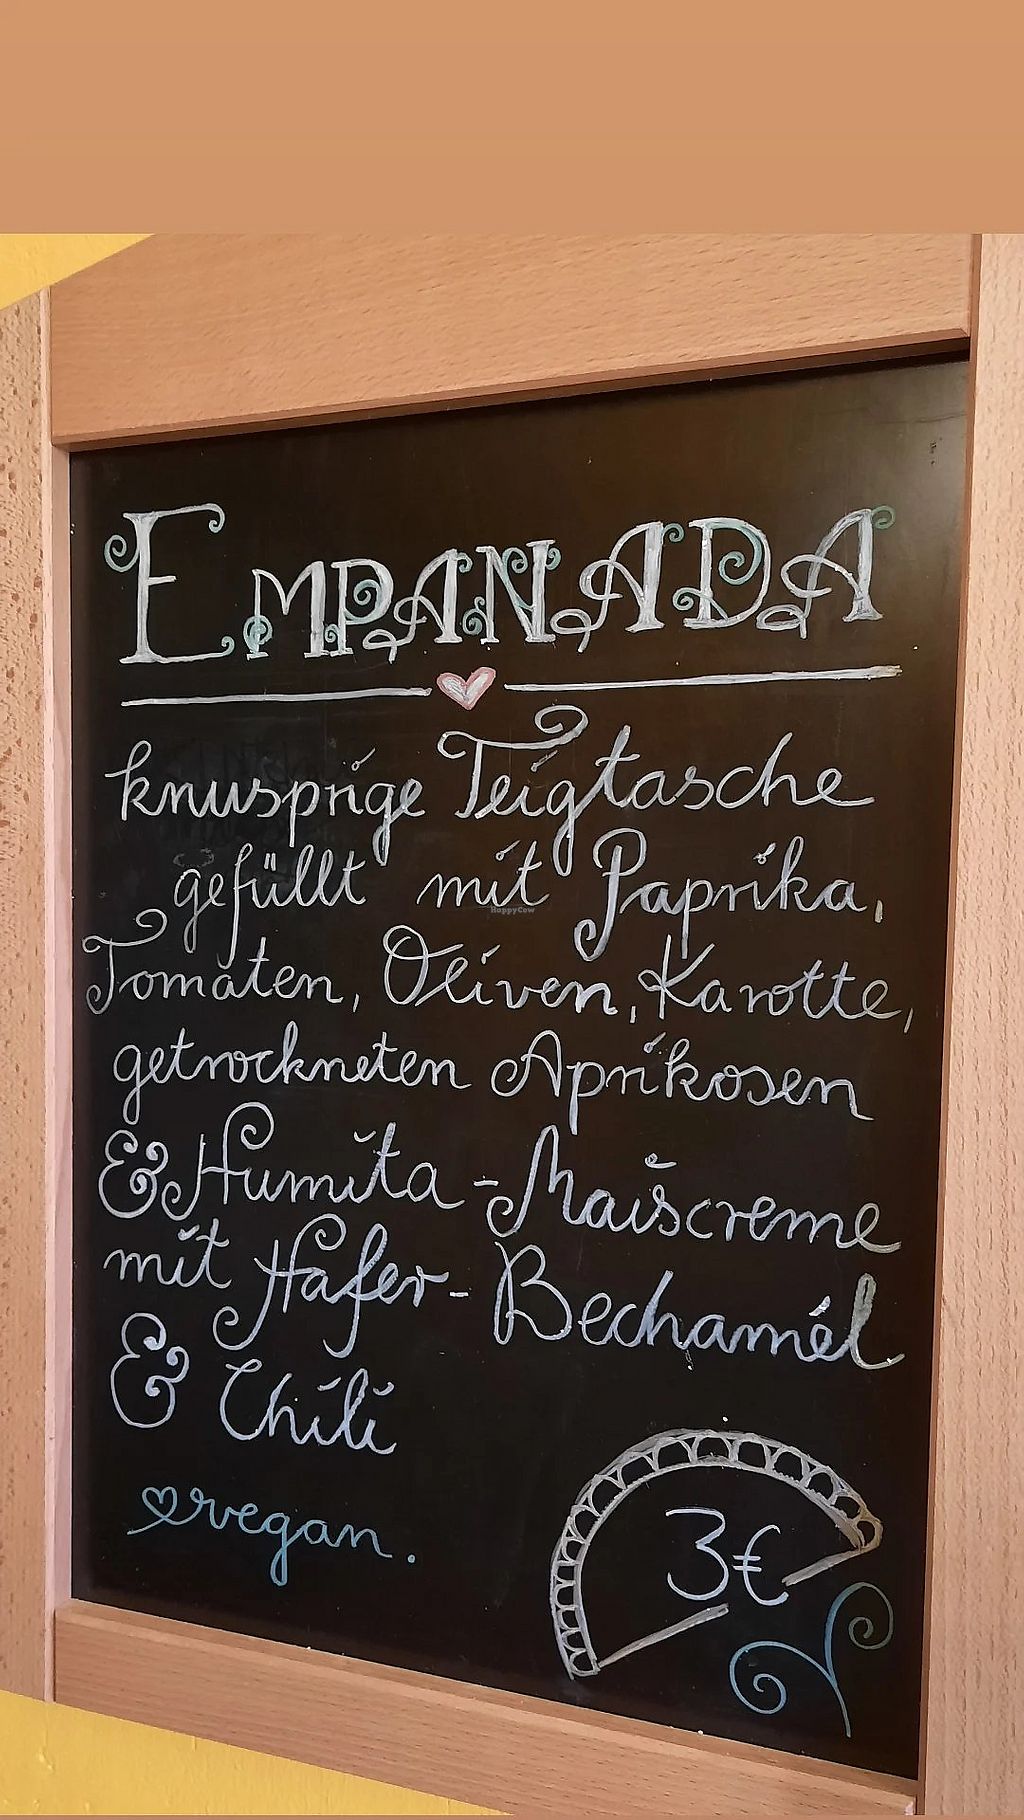 EMPANADA
knusprige Teigtasche
gefüllt mit Paprika,
HappyCow
Tomaten, Oliven, Karotte,
getrockneten Aprikosen
& Humita-Maiscreme
mit Hafer-Bechamél
& Chili
vegan.
3€